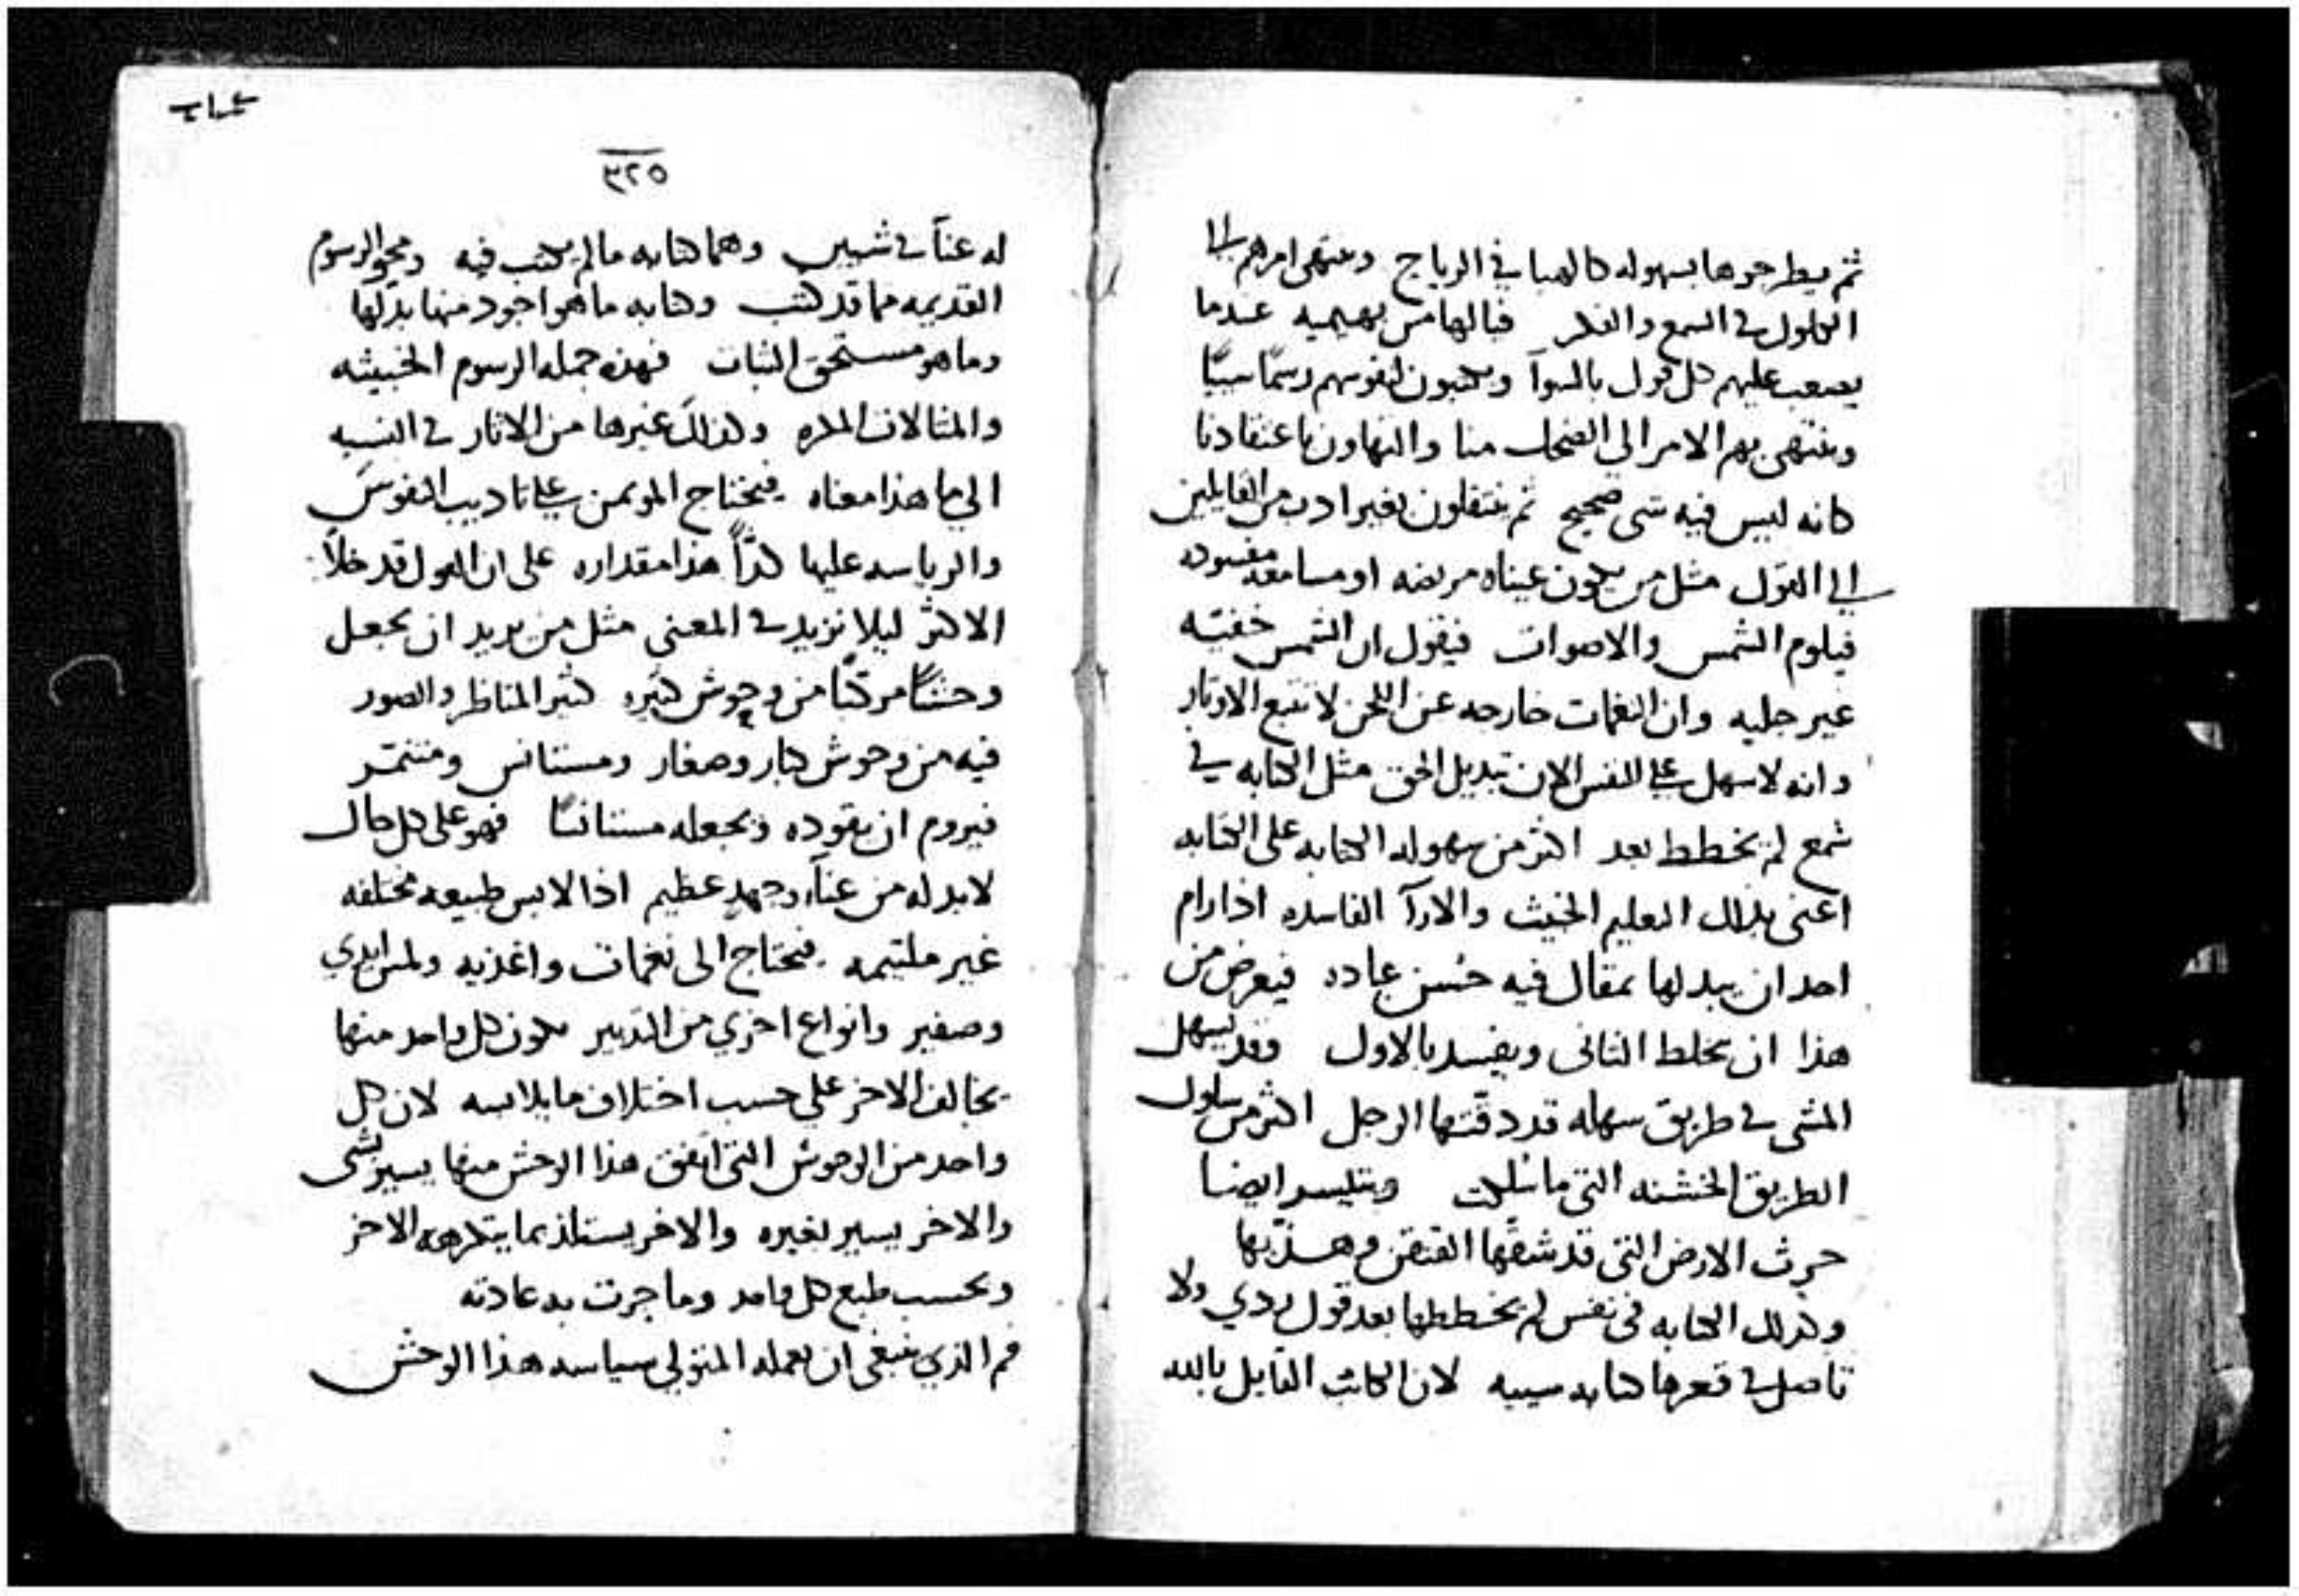 ثم يطرحوها بسهوله كالهبا في الرياح وينتهي امرهم الى
الكلول في السمع والفكر فيالها من بهيميه عندما
يصعب عليهم كل قول بالسوآ ويكتبون لنفوسهم رسمًا سيئًا
وينتهي بهم الامر الى الضحك منا والتهاون باعتقادنا
كانه ليس فيه شى صحيح ثم ينتقلون بغير ادب من القايلين
الى القول مثل من يكون عيناه مريضه او مسامعه مفسوده
فيلوم الشمس والاصوات فيقول ان الشمس خفيه
غير جليه وان النغمات خارجه عن اللحن لا تتبع الاوتار
وانه لاسهل على النفس الان تبديل الحق مثل الكتابه في
شمع لم يخطط بعد اكثر من سهوله الكتابه على الكتابه
اعنى بذلك التعليم الخبيث والارآ الفاسده اذا رام
احد ان يبدلها بمقال فيه حُسن عباده فيعرض من
هذا ان يخلط الثانى ويفسد بالاول وقد يسهل
المشى في طريق سهله قد دقتها الرجل اكثر من سلوك
الطريق الخشنه التى ما سُلكت ويتيسر ايضا
حرث الارض التى قد شقها الفدان وهذّبها
وكذلك الكتابه فى نفس لم يخططها بعد قول ردي ولا
تاصل في قعرها كتابه سييه لان الكاتب القايل بالله
٣٢٥
له عنآ في شيين وهما كتابه ما لم يكتب فيه ومحو الرسوم
القديمه مما قد كتب وكتابه ما هو اجود منها بدلها
وما هو مستحق الثبات فهذه جمله الرسوم الخبيثه
والمثالات الملره وكذلك غيرها من الاثار في النسبه
الى ما هذا معناه فيحتاج الموتمن على تاديب النفوس
والرياسه عليها كدّاً هذا مقداره على ان القول قد خلا
الاكثر ليلا نزيد في المعنى مثل من يريد ان يجعل
وحشًا مركبًا من وحوش كثيره كثير المناظر والصور
فيه من وحوش كبار وصغار ومستانس ومتنمّر
فيروم ان يقوده ويجعله مستانسًا فهو على كل حال
لا بد له من عنآء وجهد عظيم اذا لابس طبيعه مختلفه
غير ملتيمه فيحتاج الى نغمات واغذيه ولمس ايدي
وصفير وانواع اخرى من التدبير يكون كل واحد منها
يخالف الاخر على حسب اختلاف ما يلابسه لان كل
واحد من الوحوش التى اتفق هذا الوحش منها يسير بشى
والاخر يسير بغيره والاخر يستلذ بما يتكرهه الاخر
وبحسب طبع كل واحد وما جرت به عادته
فما الذي ينبغى ان يعمله المتولى سياسه هذا الوحش